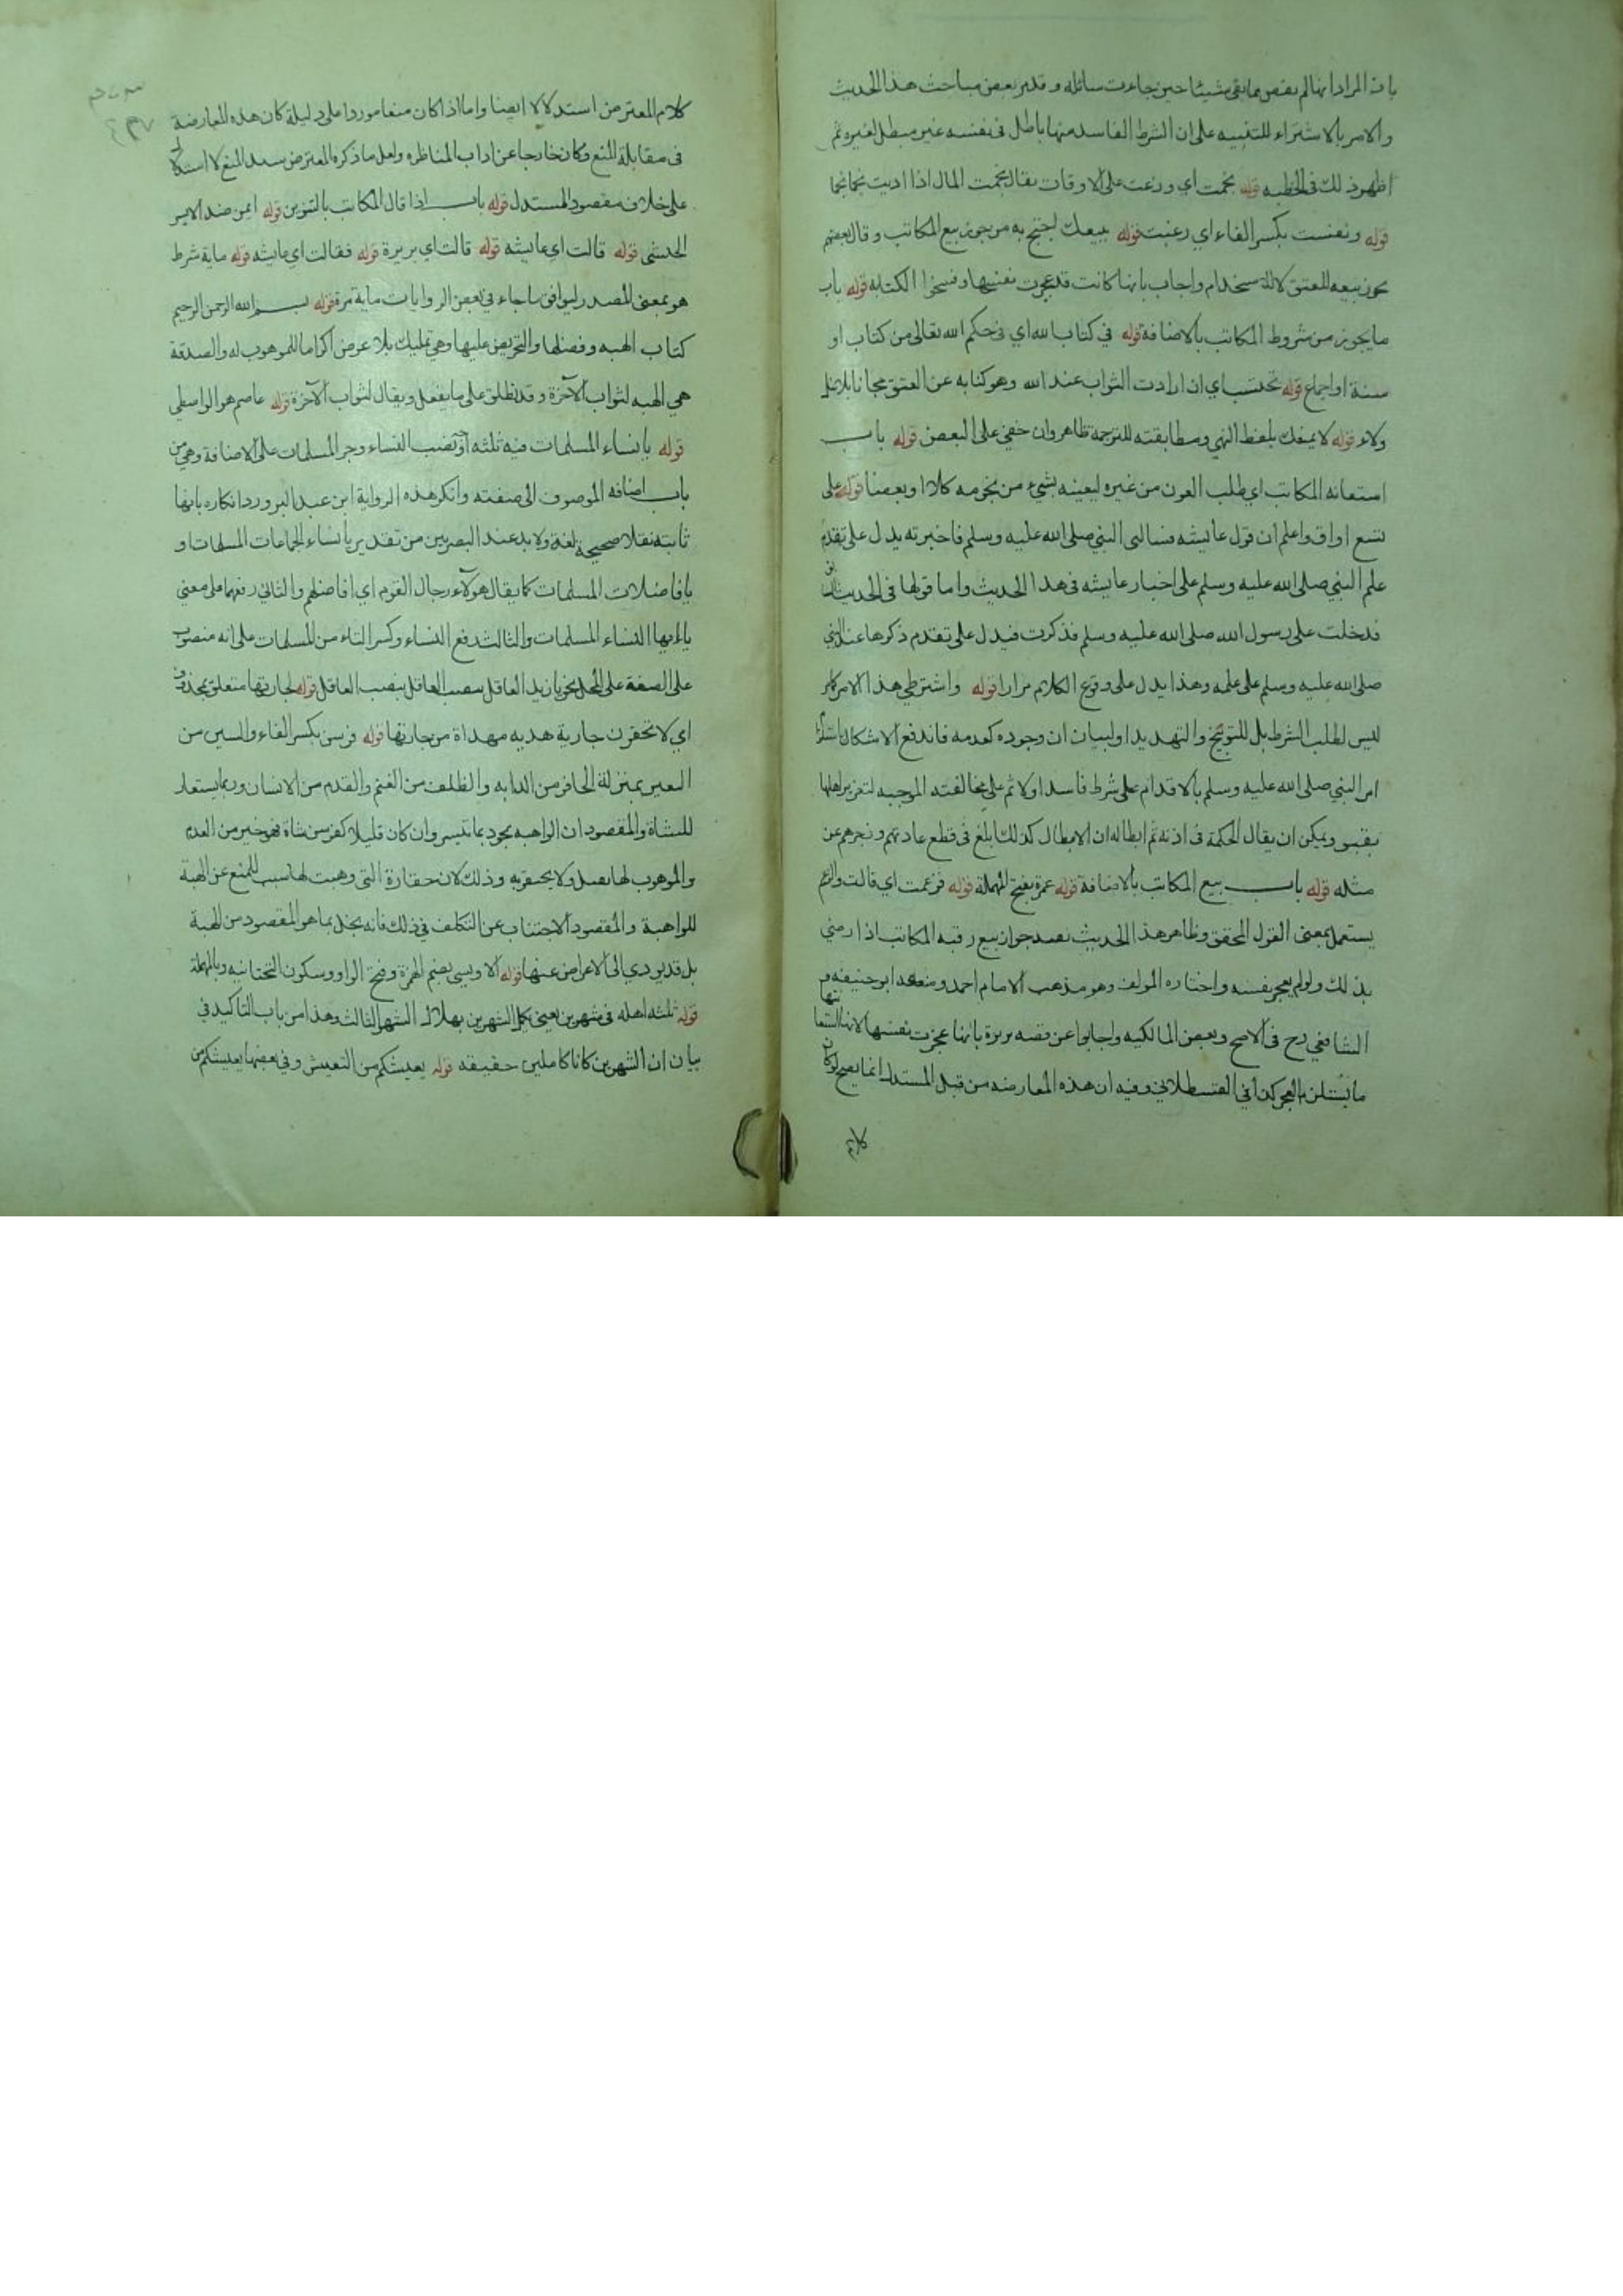 بان المراد انها لم يقض مما بقي شيئا حين جاءت سائله و قد مر بعض مباحث هذا الحديث
والامر بالاشتراء للتنبيه على ان الشرط الفاسد منها باطل في نفسه غير مبطل لغيره ثم
اظهر ذلك في الخطبه قوله نجمت اي وزعت على الاوقات يقال نجمت المال اذا اديت نجما نجما
قوله ونفست بكسر الفاء اي رغبت قوله بيعك احتج به من جوز بيع المكاتب وقال بعضهم
يجوز بيعه للعتق لا للاستخدام واجاب بانها كانت قد عجزت نفسها وفسخوا الكتابه قوله باب
ما يجوز من شروط المكاتب بالاضافة قوله في كتاب الله اي في حكم الله تعالى من كتاب او
سنة او اجماع قوله تحتسب اي ان ارادت الثواب عند الله وهو كنايه عن العتق مجانا بلا بدل
ولاء قوله لا يمنعك بلفظ النهي ومطابقته للترجمة ظاهر وان خفي على البعض قوله باب
استعانه المكاتب اي طلب العون من غيره ليعينه بشيء من نجومه كلا او بعضا قوله على
تسع اواق واعلم ان قول عائشه فسالني النبي صلى الله عليه وسلم فاخبرته يدل على تقدم
علم النبي صلى الله عليه وسلم على اخبار عايشه في هذا الحديث واما قولها في الحديث السابق
فدخلت على رسول الله صلى الله عليه وسلم فذكرت فيدل على تقدم ذكرها عند النبي
صلى الله عليه وسلم على علمه وهذا يدل على وقوع الكلام مرارا قوله واشترطي هذا الامر
ليس لطلب الشرط بل للتوبيخ والتهديد او لبيان ان وجوده كعدمه فاندفع الاشكال
امر النبي صلى الله عليه وسلم بالاقدام على شرط فاسد اولا ثم على مخالفته الموجبه لتغرير اهلها
ويمكن ان يقال الحكمة في اذنه ثم ابطاله ان الابطال كذلك ابلغ في قطع عادتهم وزجرهم عن
مثله قوله باب بيع المكاتب بالاضافة قوله عمرة بفتح المهملة قوله فزعمت اي قالت والزعم
يستعمل بمعنى القول المحقق وظاهر هذا الحديث يفيد جواز بيع رقبه المكاتب اذا رضي
بذلك ولو لم يعجز نفسه واختاره المولف وهو مذهب الامام احمد ومنعه ابو حنيفه و
الشافعي رح في الاصح وبعض المالكيه واجابوا عن قصه بريرة بانها عجزت نفسها لانها استعانتها
ما يستلزم العجز كذا في القسطلاني وفيه ان هذه المعارضه من قبل المستدل انما يصح لو كان
كلام
كلام المعترض استدلالا ايضا واما اذا كان منعا موردا على دليله كان هذه المعارضه
في مقابلة المنع وكان خارجا عن اداب المناظره ولعل ما ذكره المعترض سند المنع لا استدلالا
على خلاف مقصود المستدل قوله باب اذا قال المكاتب بالتنوين قوله ايمن ضد الايسر
الحبشي قوله قالت اي عائيشه قوله قالت اي بريرة قوله فقالت اي عايشه قوله ماية شرط
هو بمعنى المصدر ليوافق ما جاء في بعض الروايات ماية مرة قوله بسم الله الرحمن الرحيم
كتاب الهبه وفضلها والتحريض عليها وهي تمليك بلا عوض اكراما للموهوب له والصدقة
هي الهبه لثواب الآخرة وقد تطلق على ما يفعل ويقال لثواب الآخرة قوله عاصم هو الواسطي
قوله يا نساء المسلمات فيه ثلثه اوجه نصب النساء وجر المسلمات على الاضافة وهي من
باب اضافه الموصوف الى صفته وانكر هذه الرواية ابن عبد البر ورد انكاره بانها
ثابته نقلا صحيحة لغة ولا بد عند البصريين من تقدير يا نساء الجماعات المسلمات او
يا فاضلات المسلمات كما يقال هولآء رجال القوم اي افاضلهم والثاني رفعهما على معنى
يا ايها النساء المسلمات والثالث رفع النساء وكسر التاء من المسلمات على انه منصوب
على الصفة على المحل نحو يا زيد العاقل بنصب العاقل قوله لجارتها متعلق بمحذوف
اي لا تحقرن جارية هديه مهداة من جارتها قوله فرسن بكسر الفاء والسين من
البعير بمنزلة الحافر من الدابه والظلف من الغنم والقدم من الانسان وربما يستعار
للشاة والمقصود ان الواهبه يجود بما تيسر وان كان قليلا كفرسن شاة فهو خير من العدم
والموهوب لها يقبل ولا يحتقر به وذلك لان حقارة التي وهبت لها سبب للمنع عن الهبة
للواهبة والمقصود الاجتناب عن التكلف في ذلك فانه يخل بما هو المقصود من الهبة
بل قد يودي الى الاعراض عنها قوله الاويسي بضم الهمزة وفتح الواو وسكون التحتانيه وبالمهملة
قوله ثلثه اهله في شهرين يعني يكمل الشهرين بهلال الشهر الثالث وهذا من باب التاكيد في
بيان ان الشهرين كانا كاملين حقيقه قوله يعيشكم من التعيش وفي بعضها يعيشكم من